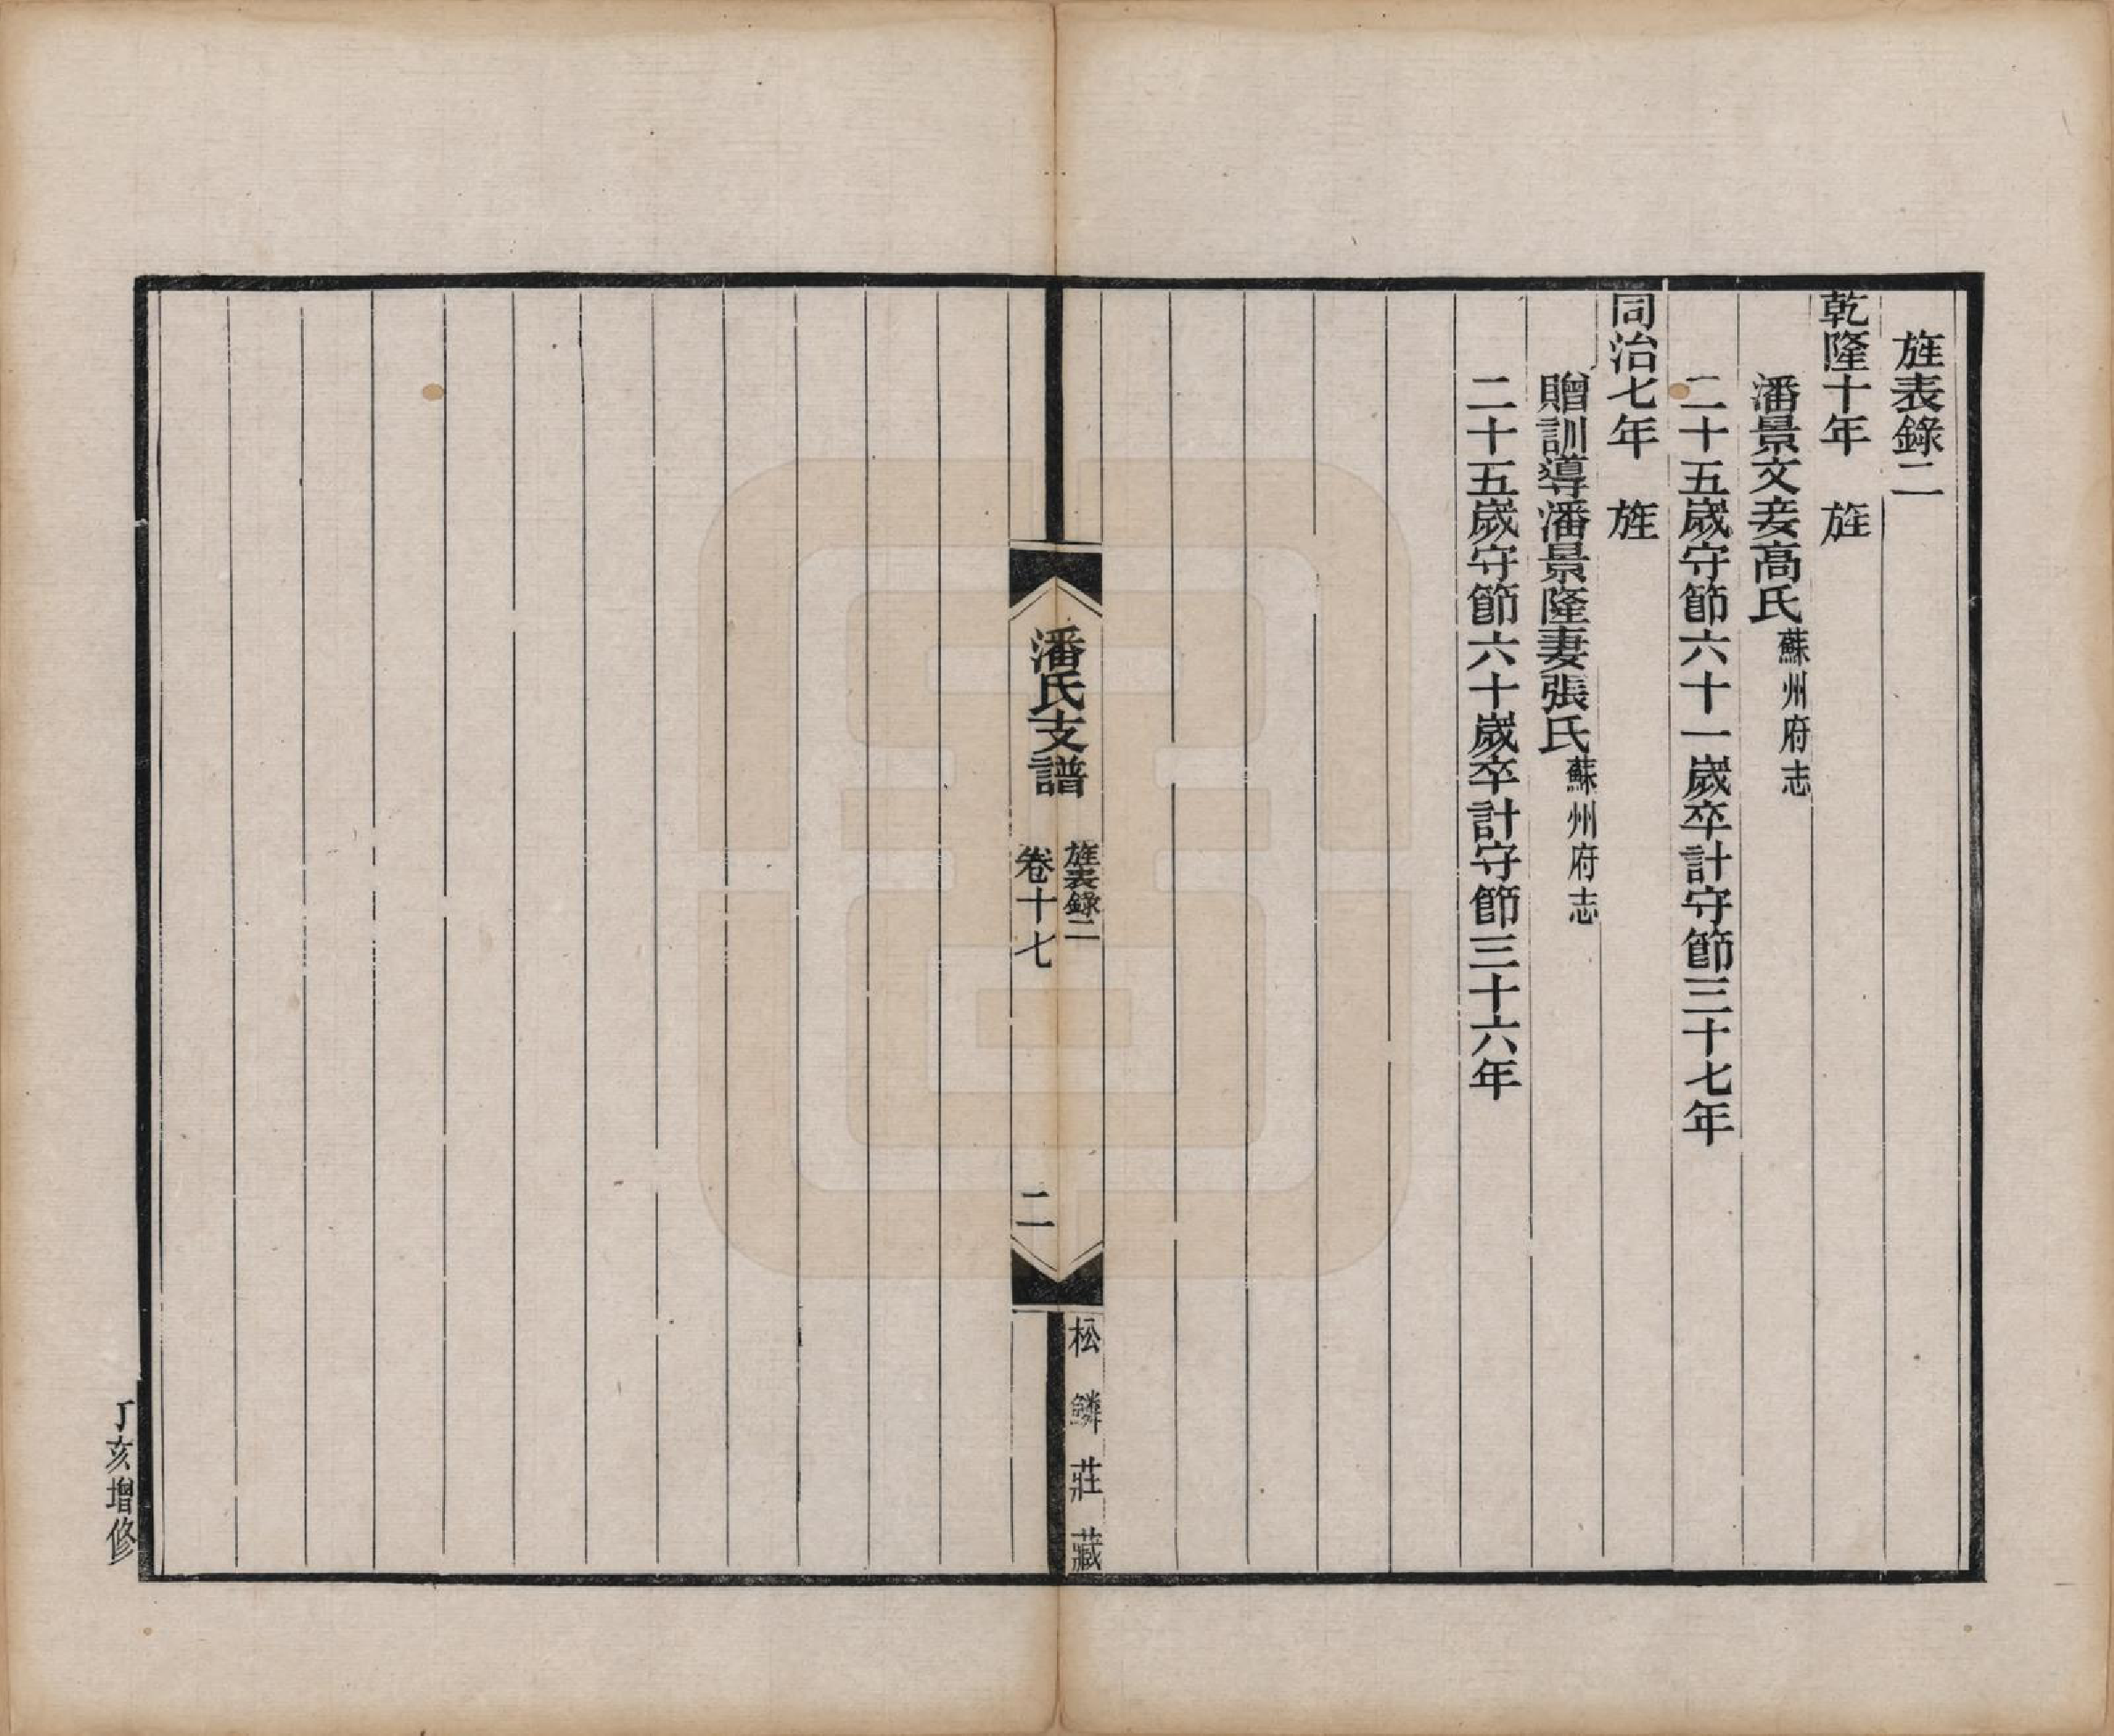 旌表錄二
乾隆十年　旌
潘景文妾高氏蘇州府志
二十五歲守節六十一歲卒計守節三十七年
同治七年　旌
贈訓導潘景隆妻張氏蘇州府志
二十五歲守節六十歲卒計守節三十六年
潘氏支譜
旌表錄二
卷十七
二
松鱗莊藏
丁亥增修